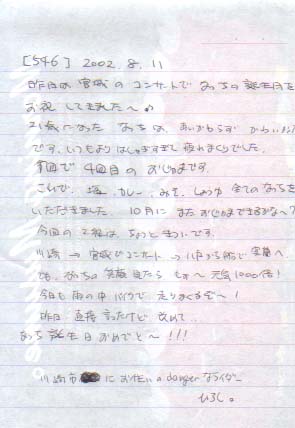 [546] 2002. 8. 11
昨日は 宮城の コンサートで なっちの 誕生日を
お祝いしてきました〜♪
21歳になった なっちは、あいかわらず かわいい
です。いつもより はしゃぎすぎて 疲れまくりでした。
で 4回目の おじゃまです。
これで、塩、カレー、みそ、しょうゆ 全ての なっちを
いただきました。10月に またおじゃまできるかな〜?
今回の 2泊は ちょっと きついです。
川崎 → 宮城でコンサート → 八戸から船で 室蘭へ
でも、なっちの 笑顔 見たら も〜 元気1000倍!
今日も 雨の中 バイクで 走りまくるぞ〜!
昨日 直接 言ったけど 改めて
なっち 誕生日 おめでと〜!!!
川崎市 に お住いの danger なライダー
ひろし。